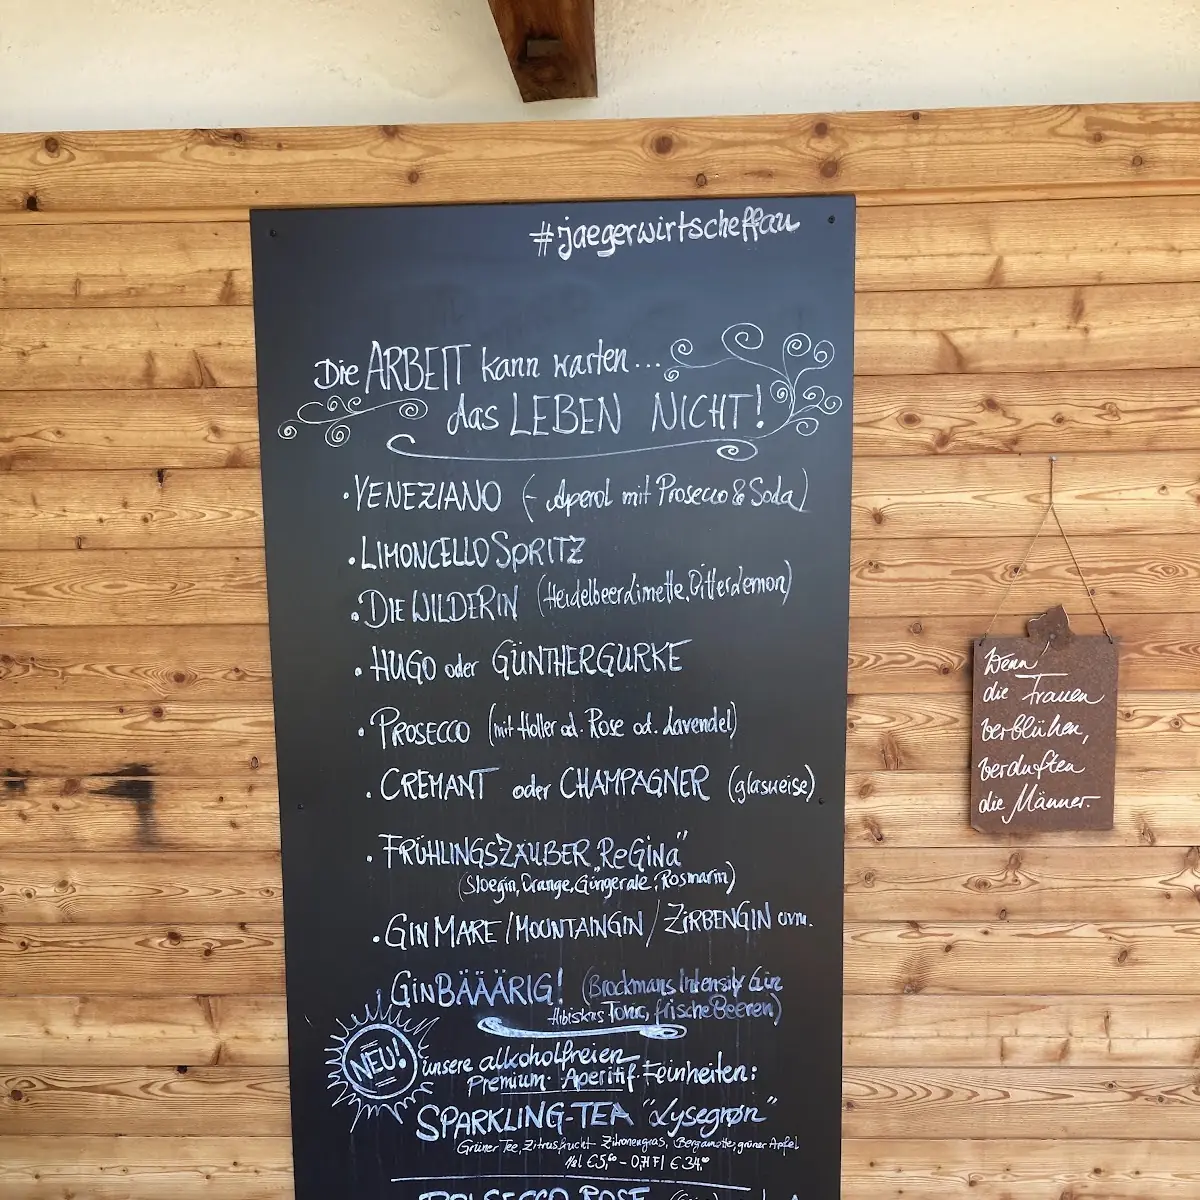 #jaegerwirtscheffau
Die ARBEIT kann warten...
das LEBEN NICHT!
• VENEZIANO (- Aperol mit Prosecco & Soda)
• LIMONCELLO SPRITZ
• DIE WILDERIN (Heidelbeer Limette, Bitterlemon)
• HUGO oder GÜNTHERGURKE
• PROSECCO (mit Holler od. Rose od. Lavendel)
• CREMANT oder CHAMPAGNER (glasweise)
• FRÜHLINGSZAUBER „ReGiNa"
(Sloegin, Orange, Gingerale, Rosmarin)
• GIN MARE / MOUNTAINGIN / ZIRBENGIN uvm.
• GINBÄÄÄRIG! (Brockmans Intensily Gin
Hibiskus Tonic, frische Beeren)
NEU! unsere alkoholfreien
Premium- Aperitif-Feinheiten:
SPARKLING-TEA "Lysegrøn"
Grüner Tee, Zitrusfrucht Zitronengras, Bergamotte, grüner Apfel
PROSECCO ROSE
Wenn
die Frauen
verblühen,
verduften
die Männer.